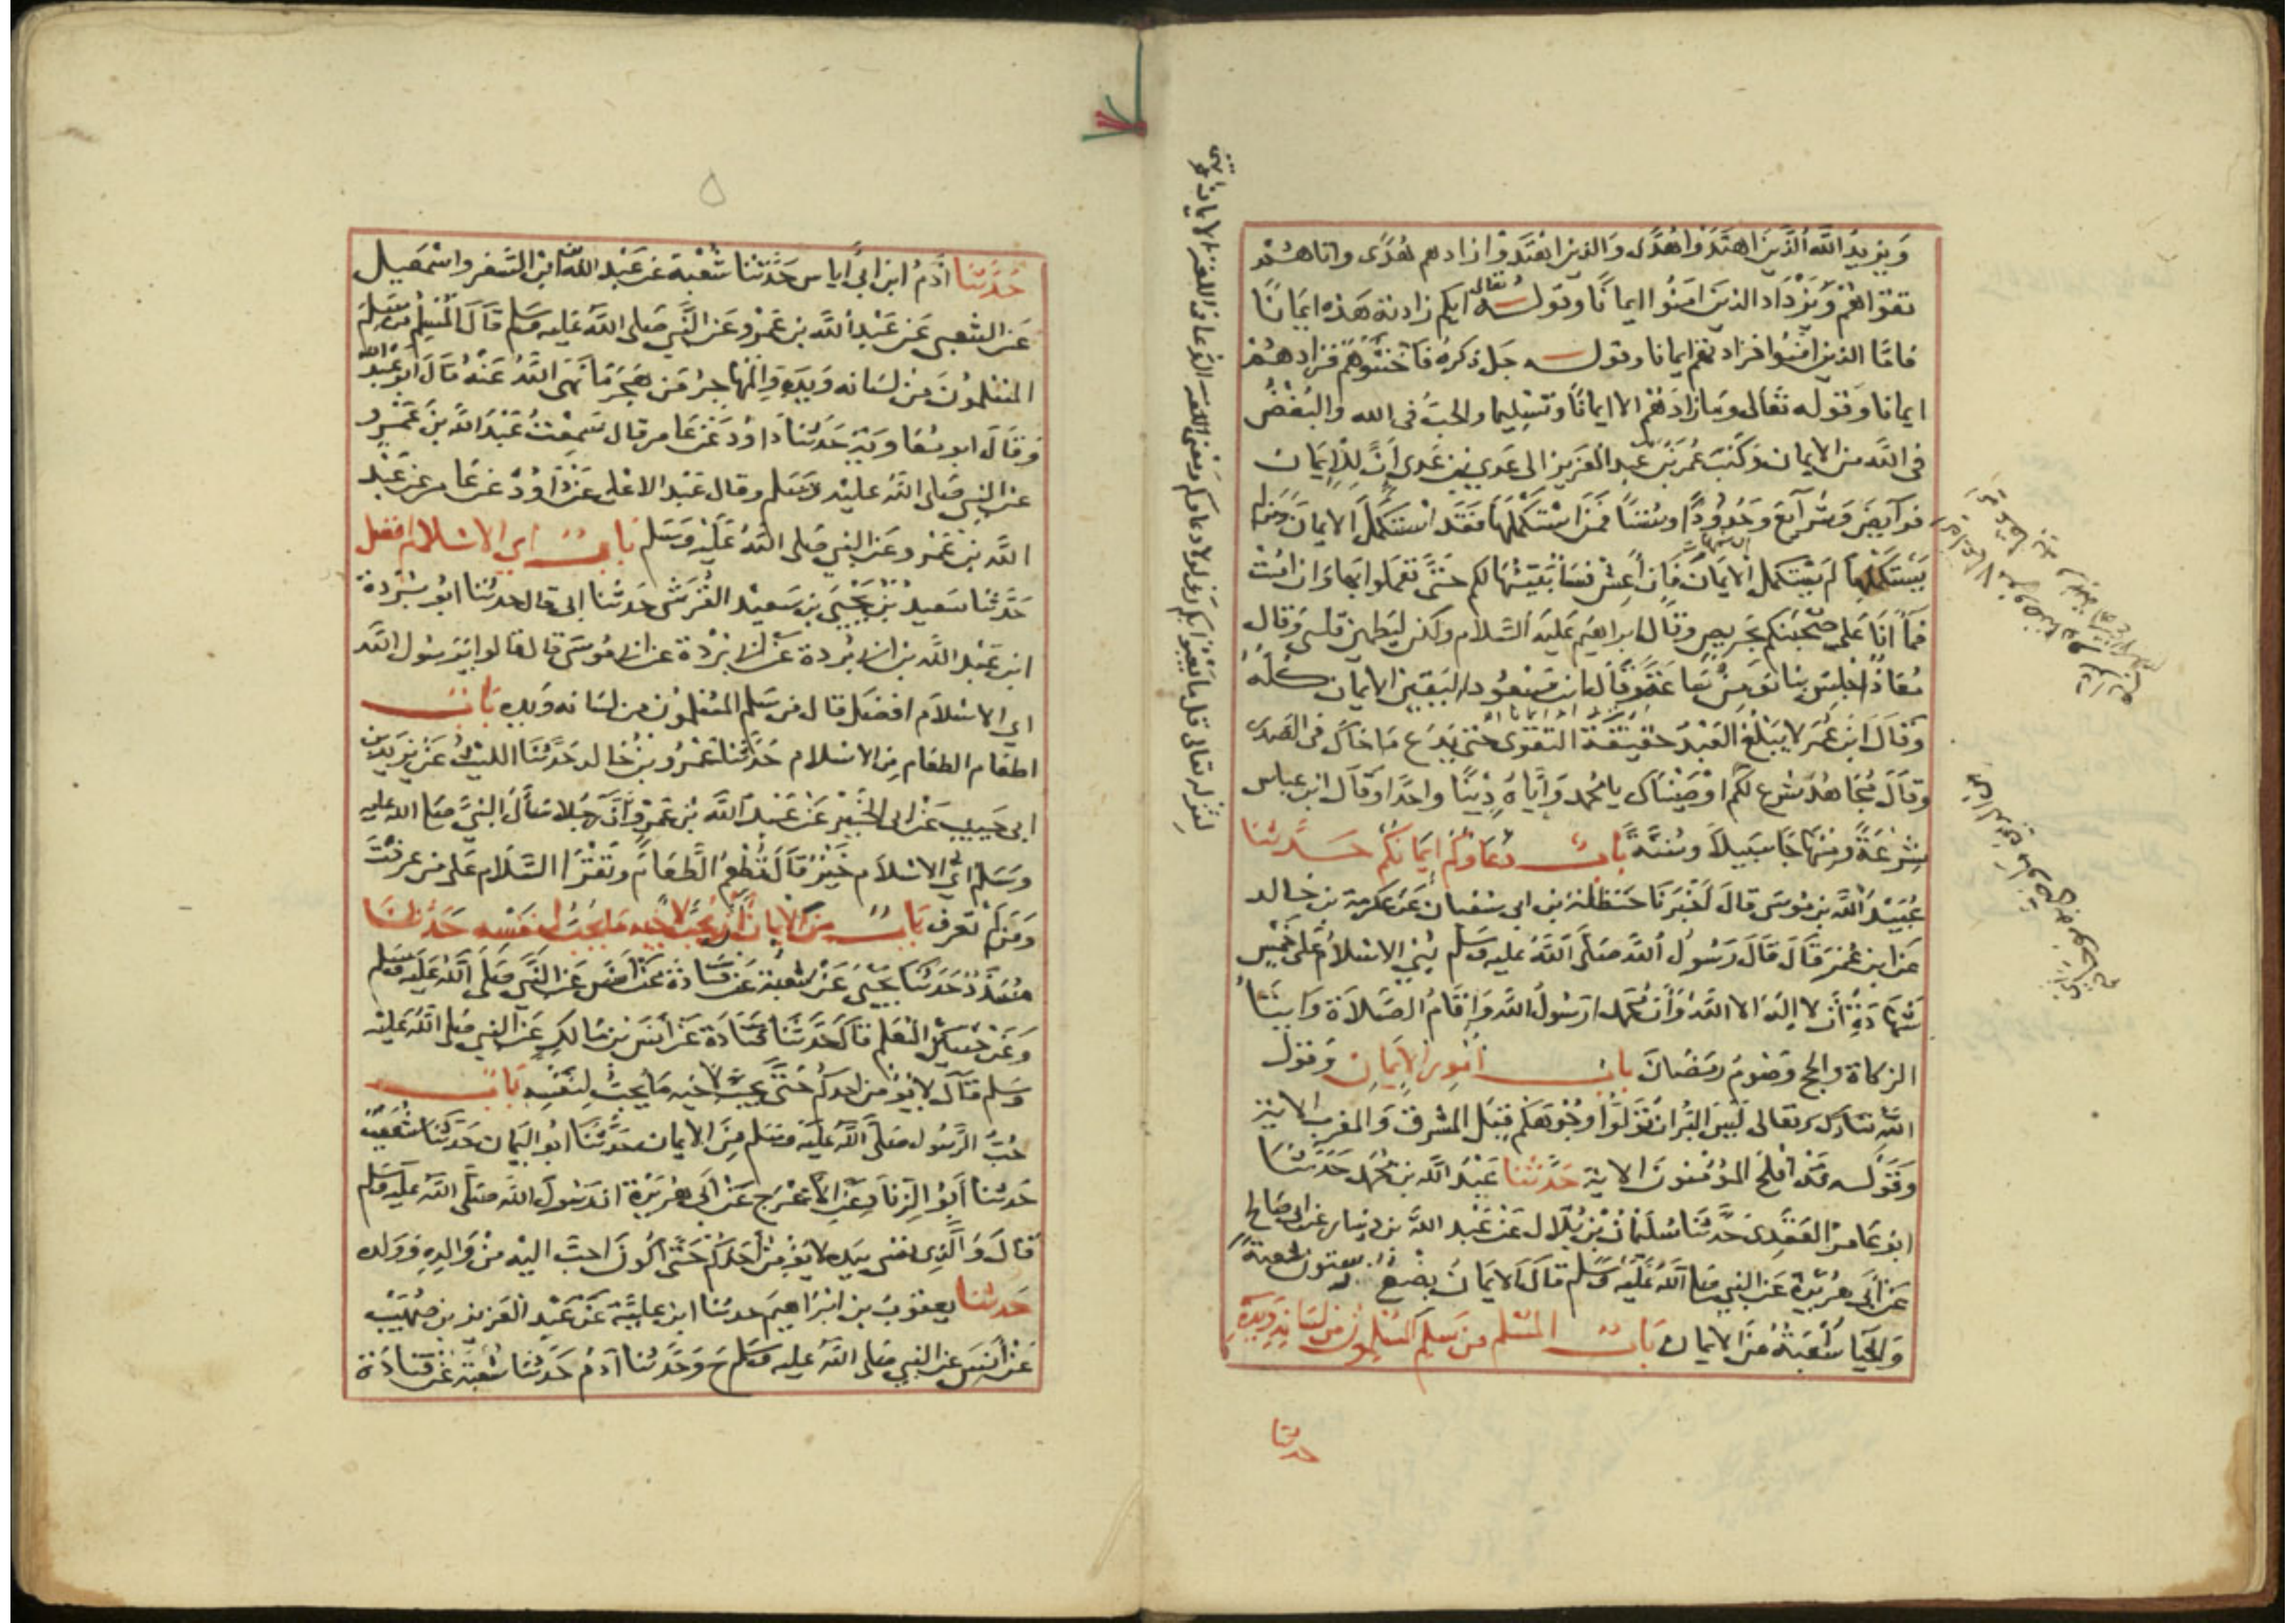 وَيَزِيدُ اللَّه الَّذِينَ اهتَدَوْا هُدًى وَالذين اهْتَدَوْا زادهم هُدًى واتاهُمْ
تقواهُمْ وَيَزْدَادَ الذينَ آمَنُوا ايمانًا وقوله تعالى ايكم زادته هَذه ايمانًا
فامَّا الذين امَنُوا فزادتهم ايمانا وقوله جل ذكرهُ فَاخْشَوْهُمْ فزادهُمْ
ايمانا وَقوله تعَالى ومَا زادَهُمْ الا ايمانًا وَتسْلِيما والحبُّ في الله والبُغْضُ
في اللَّه من الايمان وَكَتَبَ عُمَرُ بنُ عَبد العَزيز الى عَدي بن عَدي اَنَّ لِلْاِيمَان
فرآيِضَ وَشرآيعَ وَحُدُودًا وسُنَنًا فَمَن اسْتَكْمَلَهَا فَقَد اسْتَكْمَلَ الايمَان وَمَن لم
يَسْتَكْمِلها لم يَسْتكمل الايمَانَ فَاِن أعِشْ فسَأُبَيِّنُهَا لكم حَتَّى تَعْمَلوا بهَا وَان امُتْ
فمَا اَنَا عَلى صُحْبَتِكم بحَريصٍ وَقال ابراهيم عَليْه السَّلام ولكن ليَطمئِن قلبي وَقال
مُعَاذ اجْلِس بنا نؤمِنْ سَاعَة وَقالَ ابن مَسْعُود اليَقين الايمان كُلّهُ
وَقَالَ ابْنُ عُمَرَ لا يَبْلُغُ العَبْدُ حَقِيقَةَ التَقْوى حَتى يَدَع مَا حَاكَ في الصَدْر
وَقَالَ مُجَاهدٌ شَرعَ لكُم اوْصَيْنَاكَ يا محمد وَاِيَّاهُ دِيْنًا واحدًا وَقال ابن عباس
شِرْعَةً ومنهَاجًا سَبيلًا وَسُنَّةً بابٌ دُعَاؤكُمْ اِيمَانكُمْ حَدَّثنا
عُبَيْدُ اللَّه بن مُوسَى قالَ أخْبَرنَا حَنظَلة بن ابي سُفيان عَن عكرمة بن خالد
عَن ابن عُمَر قَالَ قَالَ رَسُولُ اللَّه صَلّى اللَّهُ عليه وَسَلّم بُنِيَ الاسْلامُ عَلَى خَمْسٍ
شَهَادَةِ أن لا اِلَهَ الا اللَّهُ وَأنّ مُحَمدا رَسُولُ اللَّه وَاِقَامِ الصَلَاة وَايتَاءِ
الزكاة والحج وَصَومُ رمَضَانَ بابُ اُمُورِ الاِيمَانِ وَقَوْل
اللَّهِ تبَارَك وَتعَالى لَيْسَ البِرُّ ان تُوَلّوا وُجُوهَكُم قِبَل المشرق وَالمَغرب الاية
وَقوله قَد افْلَحَ المُؤمنُونَ الاية حَدَّثنا عَبْدُ اللَّه بن مُحَمد حَدَّثنا
ابوُ عَامر العَقَدِى حَدَّثنا سُلَيْمَانُ بْنُ بلَال عَنْ عَبْد اللَّه بن دينار عَن ابي صَالح
عَن أَبي هُرَيْرَة عَن النبي صَلى اللَّهُ عَليْهِ وَسَلم قَالَ الايمَانُ بضْعٌ وستون شعبةً
وَالحَيَا شُعْبَةٌ مِن الايمان بَابُ المُسْلم مَن سَلِمَ المُسْلمون من لسَانه وَيده
حدثنا
حَدَّثنا آدَمُ ابن ابي اياس حَدَّثَنَا شُعْبَة عَن عَبْد اللَّه ابن السَفر واسْمعيل
عَن الشعبي عَن عَبْد اللَّه بن عَمْرو عَن النَّبي صَلى اللَّهُ عَليه وَسَلم قَالَ المُسْلِمُ مَن سَلِمَ
المُسْلمُونَ مِنْ لسَانه وَيَدِه وَالمُهَاجرُ مَن هَجَرَ مَا نَهَى اللَّهُ عَنْهُ قَالَ ابُو عَبْد الله
وَقَالَ ابو مُعَاويَة حَدَّثنا دَاوُدَ عَن عَامر قال سَمِعْتُ عَبْدَ اللَّه بن عَمْرو
عَن النبي صَلى اللَّهُ عَليْه وَسَلم وَقال عَبْد الاعْلى عَنْ دَاوُدْ عَن عَامر عَن عَبْد
اللَّه بْن عَمْرو عَن النبي صَلى اللَّهُ عَلَيْهِ وَسَلم بَابٌ اي الاسْلام افضل
حَدَّثنَا سَعيدُ بْنُ يَحْيَى بن سَعيْد القُرَشي حَدثنا ابي قال حدثنا ابُو بُرْدَة
ابن عَبْد اللَّه بن ابي بُرْدة عَن ابي بُرْدة عن ابي مُوسَى قال قالوا يَرسُول اللَّه
اي الاسْلَام افضَل قال مَن سَلم المُسْلمُون من لسَانه وَيده بَابٌ
اطعَام الطعَام مِن الاسْلام حَدَّثنَا عَمْرُو بنُ خَالد حَدَّثنَا الليْثُ عَنْ يَزيد بن
ابي حَبيب عَن ابي الخَيْر عَنْ عَبْد اللَّه بْن عَمرو أنَّ رجُلا سَأَلَ النبيَّ صَلى الله عليه
وَسَلم ايُّ الاسْلَام خَيْرٌ قَالَ تُطْعِمُ الطَّعَام وَتَقْرَأ السَّلَام عَلى مَن عرفْتَ
وَمَن لم تعرف بَابٌ مِن الايمان أنْ يُحِبَّ لاخيه مَا يُحِبُّ لنفسه حَدَّثنَا
مُسَدَّدٌ حَدَّثنَا يَحْيَى عَنْ شعبة عَن قتَادَة عَن أنَس عَن النَّبي صَلى اللَّهُ عَليه وَسَلم
وَعَن حُسَيْن المعَلم قال حَدَّثنَا قتَادَة عَن أنَس بن مَالكٍ عَن النبي صَلى اللَّهُ عَليْه
وَسَلم قَالَ لا يُؤمِن احدكُم حَتَّى يُحِبَّ لاخيه مَا يُحبُّ لِنَفْسِه بَابٌ
حُبُّ الرَّسُول صَلى اللَّهُ عَلَيْه وَسَلم مِنَ الايمان حَدَّثَنَا ابُو اليَمَان حَدَّثنَا شُعَيْبٌ
حَدثنا أَبُو الزِنَادِ عَنِ الأعْرَج عَنْ ابَي هُرَيْرَة ان رَسُولَ اللَّه صَلَّى اللَّهُ عَليه وَسَلم
قَالَ وَالَّذِي نفسي بيَده لا يُؤمِنُ أحَدُكُمْ حَتَّى أكُونَ احبَّ اليْه مِنْ وَالِدِهِ وَوَلده
حَدَّثنا يَعقوبُ بن ابْرَاهيمَ حَدثنا ابن عليَّة عَنْ عَبْد العَزيز بن صُهَيْب
عَنْ أنَس عَن النبي صَلى اللَّهُ عَليه وَسَلم ح وَحَدَّثنا آدَمُ حَدَّثنا شُعْبَة عَن قتَادَة